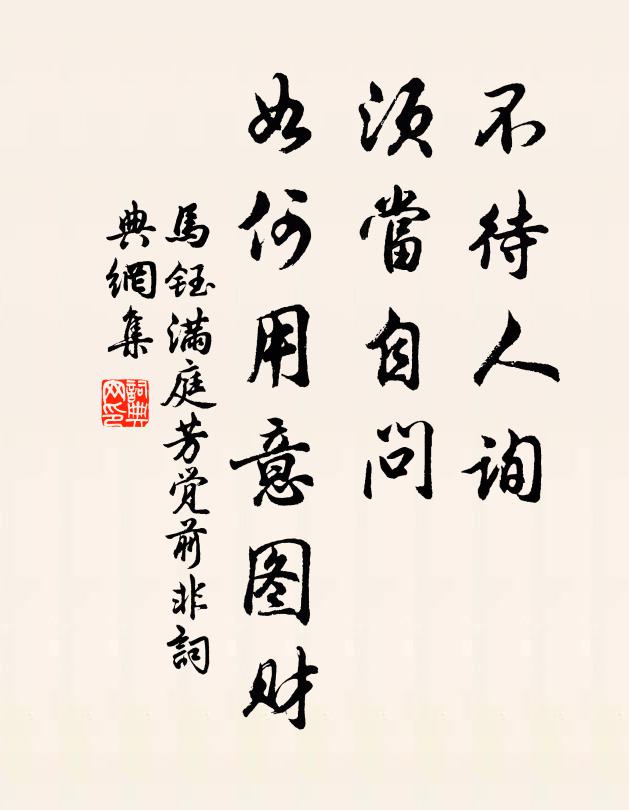 不待人询
须當自问
如何用意图财
馬钰满庭芳觉前非詞
典網集
詞典网印